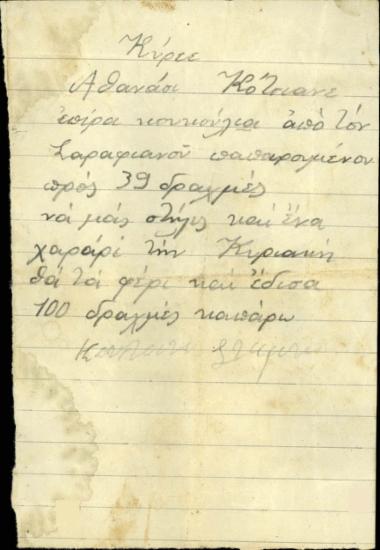 Κύριε
Αθανάσι Κότσιανε
ἐπίρα κουκούλια ἀπὸ τόν
Σαραφιανοῦ παπαρομένον
πρός 39 δραχμές
νά μάς στήλις καί ἕνα
χαράρι τήν Κυριακή
θά τά φέρι καί ἔδισα
100 δραχμές καπάρω